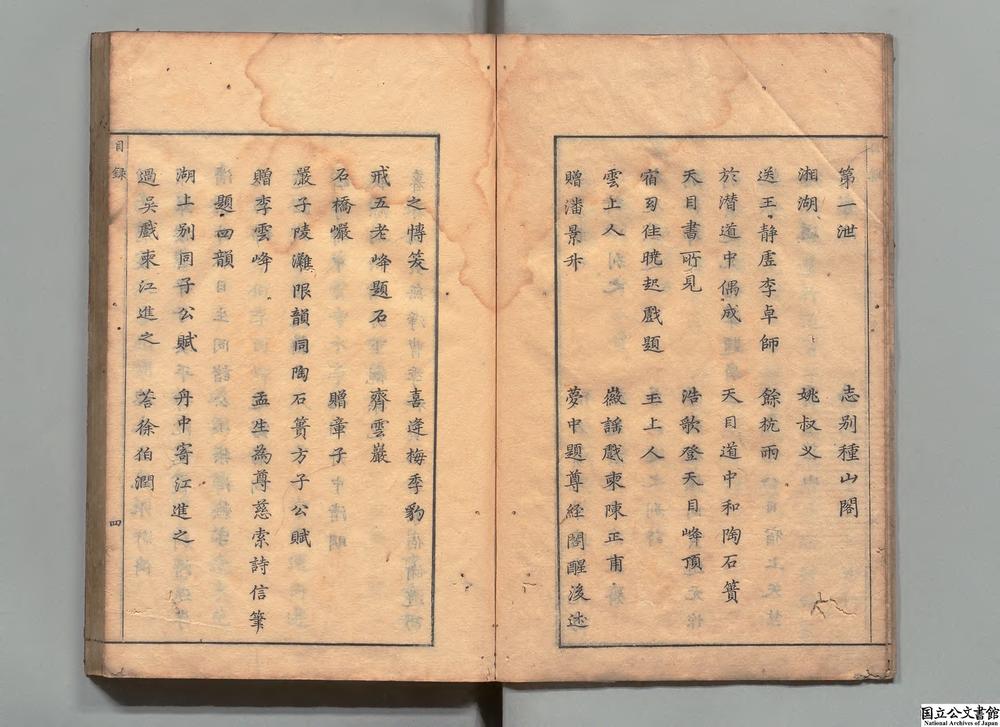 第一泄　志别種山閣
湘湖　姚叔乂
送王静虛李卓師　餘杭雨
於潛道中偶成　天目道中和陶石簣
天目書所見　浩歌登天目峰頂
宿幻住曉起戲題　玉上人
雲上人　嶶謡戲柬陳正甫
贈潘景升　夢中題尊經閣醒後述
之博笑　喜逢梅季豹
戒五老峰題石　齊雲巖
石橋巖　贈章子
嚴子陵灘限韻同陶石簣方子公賦
贈李雲峰　孟生為尊慈索詩信筆
題四韻
湖上别同子公賦　丹中寄江進之
過吳戲柬江進之　荅徐伯潤
目録
四
国立公文書館
National Archives of Japan